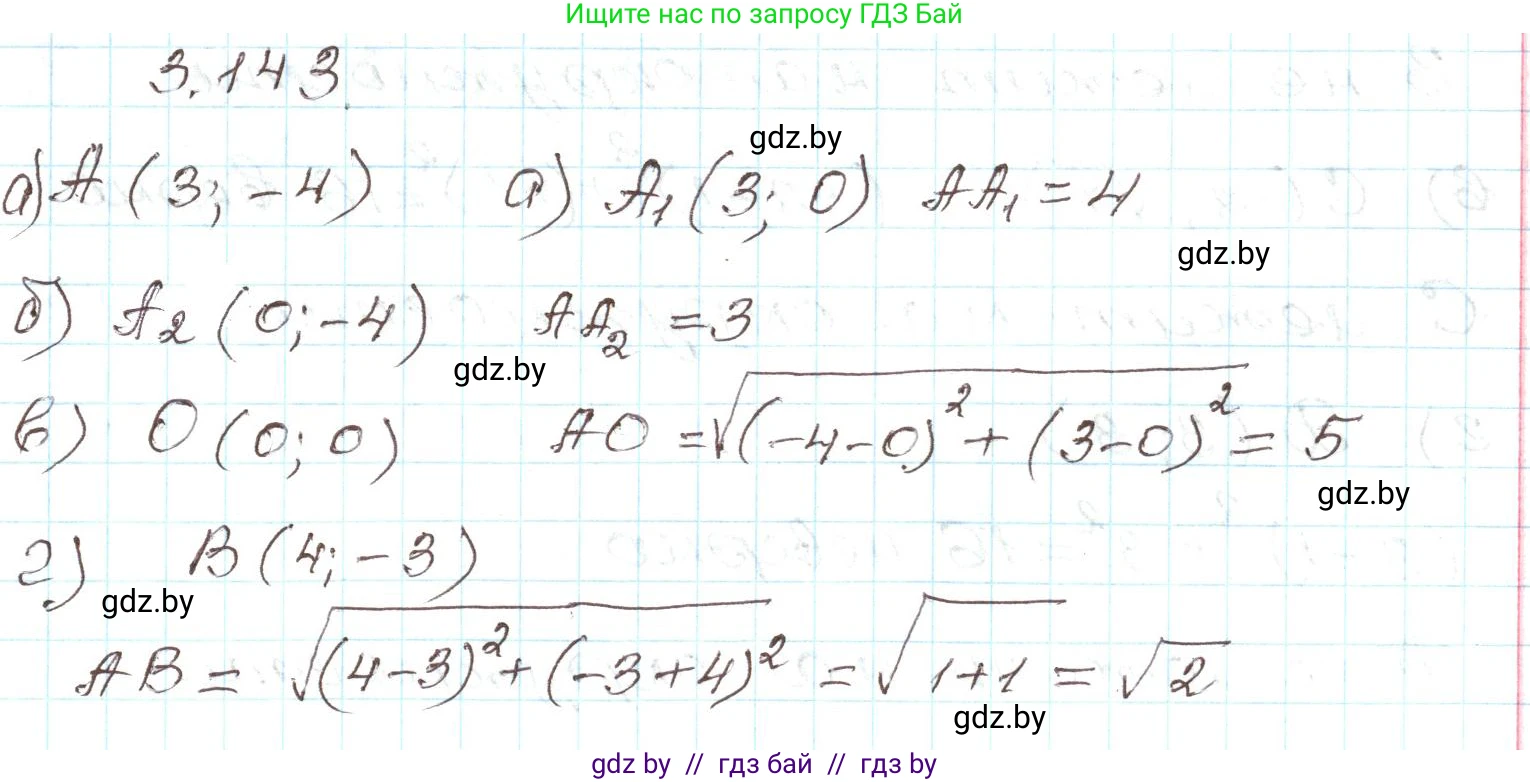 Ищите нас по запросу ГДЗ Бай
3.143.
gdz.by
а) A (3; -4) а) A₁ (3; 0) AA₁ = 4
gdz.by
б) A₂ (0; -4) AA₂ = 3
gdz.by
в) O (0; 0) AO = √((-4-0)² + (3-0)²) = 5
gdz.by
г) B (4; -3)
gdz.by
AB = √((4-3)² + (-3+4)²) = √(1+1) = √2
gdz.by
gdz by // гдз бай // гдз by